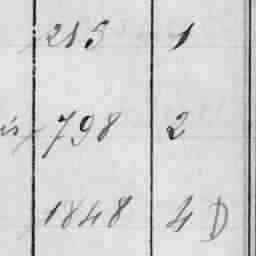 213 1
is 798 2
1848 4 D